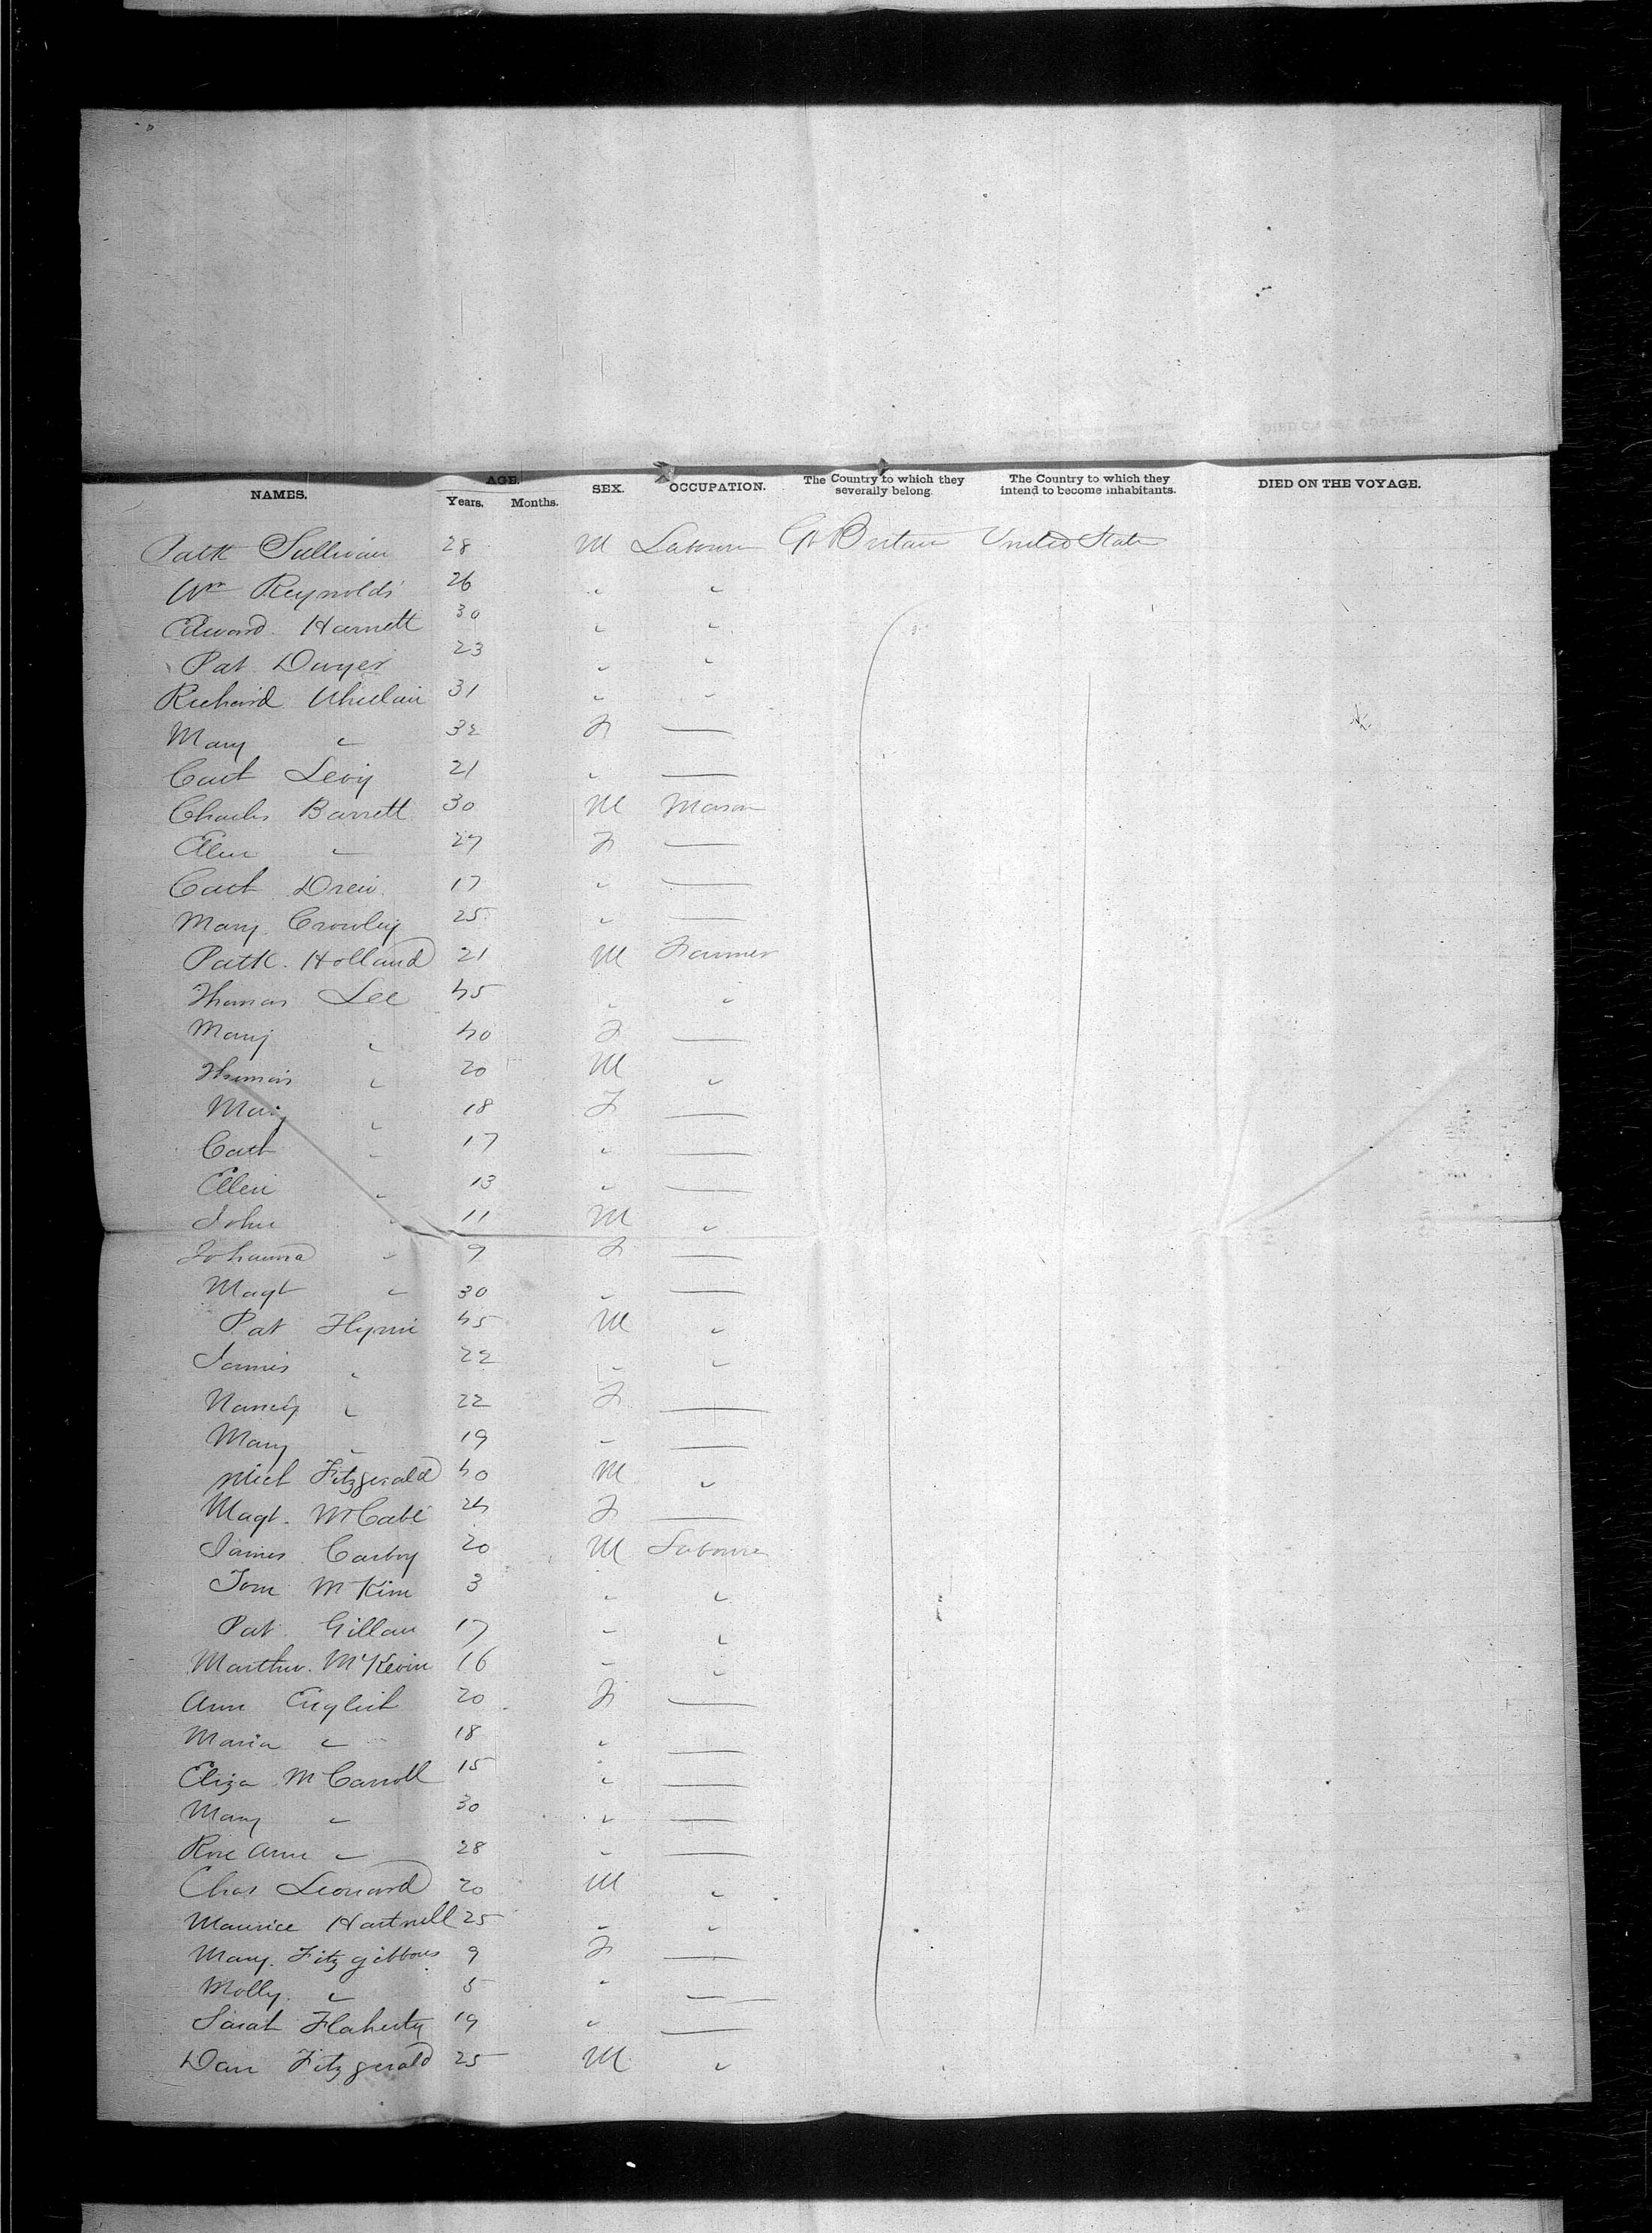 NAMES. AGE. Years. Months. SEX. OCCUPATION. The Country to which they severally belong. The Country to which they intend to become inhabitants. DIED ON THE VOYAGE.
Patk Sullivan 28 M Labourer Gt Britain United States
Wm Reynolds 26 " "
Edward Harnett 30 " "
Pat Dwyer 23 " "
Richard Whelan 31 " "
Mary " 32 F —
Cath Levy 21 " —
Charles Barrett 30 M Mason
Ellen " 27 F —
Cath Drew 17 " —
Mary Crowley 25 " —
Patk. Holland 21 M Farmer
Thomas Lee 45 " "
Mary " 40 F —
Thomas " 20 M "
Mary " 18 F —
Cath " 17 " —
Ellen " 13 " —
John " 11 M "
Johanna " 9 F —
Magt " 30 " —
Pat Flynn 45 M "
James " 22 " "
Nancy " 22 F —
Mary " 19 " —
Mich Fitzgerald 40 M "
Magt. McCabe 24 F —
James 20 M Labourer
Tom McKim 3 " "
Pat Gillan 17 " "
16 " "
Ann English 20 F —
Maria " 18 " —
Eliza McCarroll 15 " —
Mary " 30 " —
Rose Ann " 28 " —
Chas Leonard 20 M "
Maurice Hartnell 25 " "
Mary Fitzgibbons 9 F —
Molly " 5 " —
Sarah Flaherty 19 " —
Dan Fitzgerald 25 M "